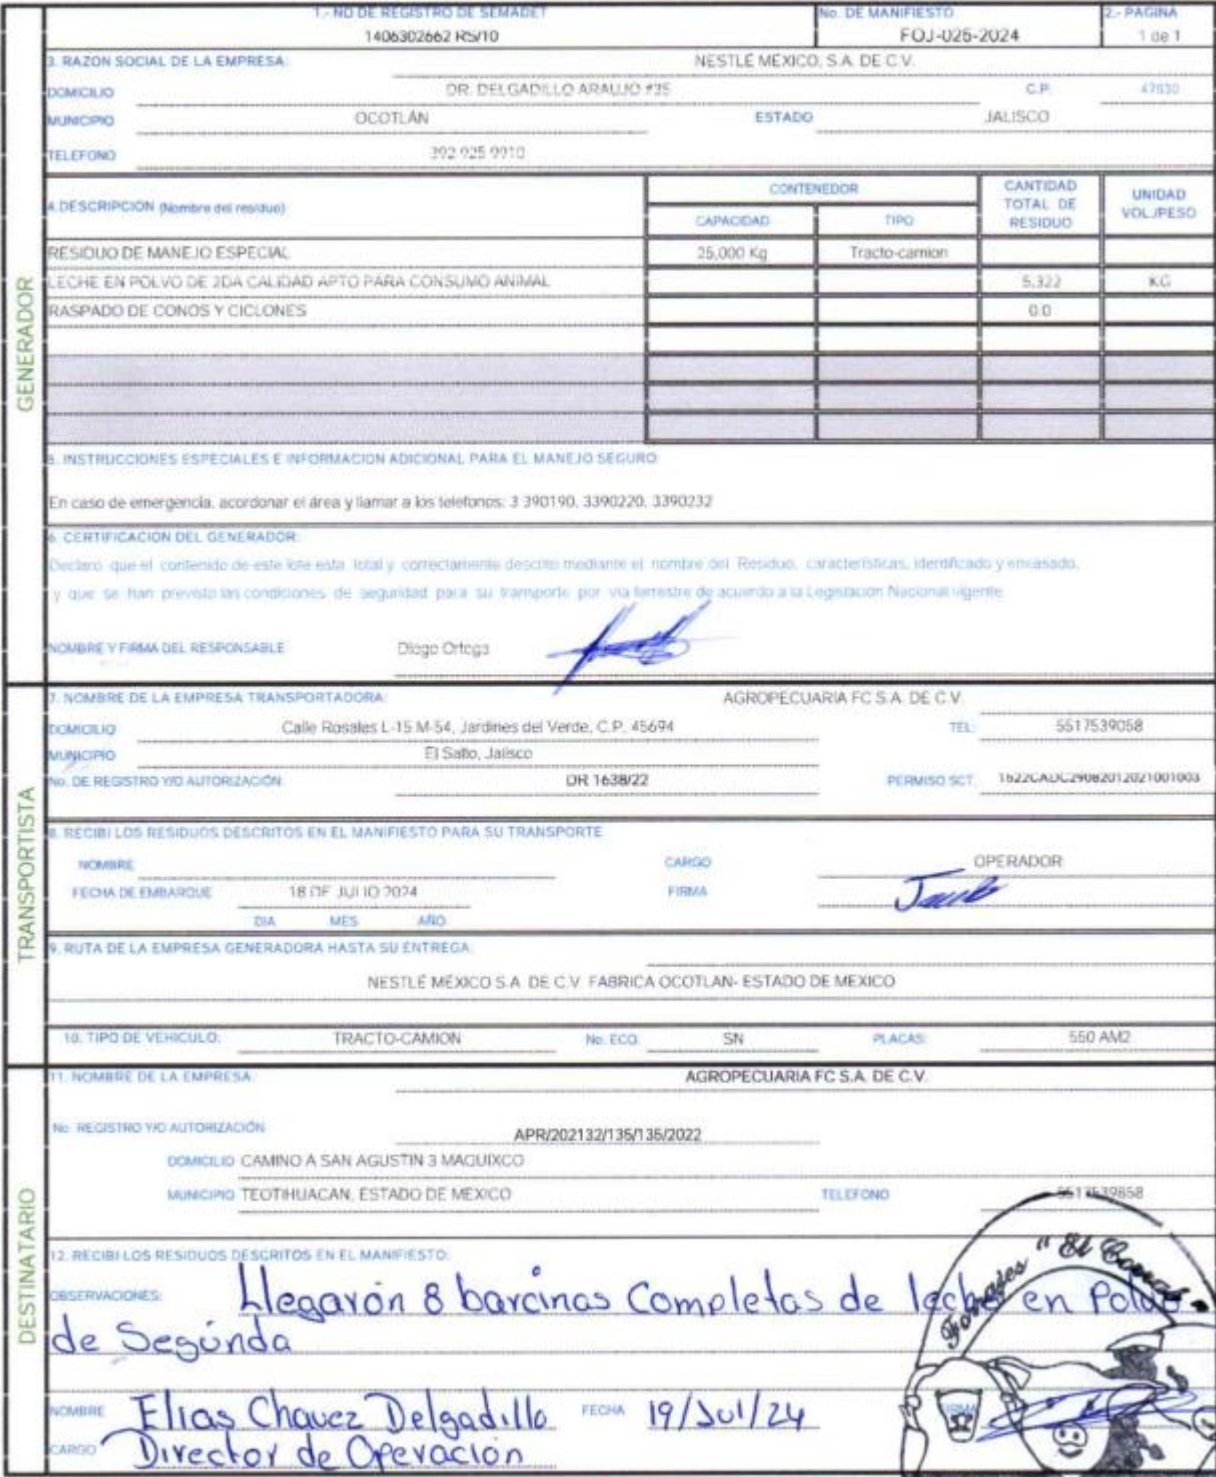 1.- NO DE REGISTRO DE SEMADET No. DE MANIFIESTO 2.- PAGINA
1406302662 RS/10 FOJ-025-2024 1 de 1
3. RAZON SOCIAL DE LA EMPRESA: NESTLÉ MÉXICO, S.A. DE C.V.
DOMICILIO DR. DELGADILLO ARAUJO #35 C.P.
MUNICIPIO OCOTLÁN ESTADO JALISCO
TELEFONO 392 925 9910
4.DESCRIPCION (Nombre del residuo) CONTENEDOR CANTIDAD TOTAL DE RESIDUO UNIDAD VOL./PESO
CAPACIDAD TIPO
RESIDUO DE MANEJO ESPECIAL 25,000 Kg Tracto-camion
LECHE EN POLVO DE 2DA CALIDAD APTO PARA CONSUMO ANIMAL 5,322 KG
RASPADO DE CONOS Y CICLONES 0.0
GENERADOR
5. INSTRUCCIONES ESPECIALES E INFORMACION ADICIONAL PARA EL MANEJO SEGURO:
En caso de emergencia, acordonar el área y llamar a los telefonos: 3 390190, 3390220, 3390232
6. CERTIFICACION DEL GENERADOR:
Declaro que el contenido de este lote esta total y correctamente descrito mediante el nombre del Residuo, características, identificado y envasado,
y que se han previsto las condiciones de seguridad para su transporte por vía terrestre de acuerdo a la Legislación Nacional vigente
NOMBRE Y FIRMA DEL RESPONSABLE Diego Ortega
7. NOMBRE DE LA EMPRESA TRANSPORTADORA: AGROPECUARIA FC S.A. DE C.V.
DOMICILIO Calle Rosales L-15 M-54, Jardines del Verde, C.P. 45694 TEL: 5517539058
MUNICIPIO El Salto, Jalisco
No. DE REGISTRO Y/O AUTORIZACIÓN: DR 1638/22 PERMISO SCT. 1622CADC29082012021001003
TRANSPORTISTA
8. RECIBI LOS RESIDUOS DESCRITOS EN EL MANIFIESTO PARA SU TRANSPORTE
NOMBRE CARGO OPERADOR
FECHA DE EMBARQUE 18 DE JULIO 2024 FIRMA
DIA MES AÑO
9. RUTA DE LA EMPRESA GENERADORA HASTA SU ENTREGA:
NESTLÉ MÉXICO S.A. DE C.V. FABRICA OCOTLAN- ESTADO DE MEXICO
10. TIPO DE VEHICULO: TRACTO-CAMION No. ECO. SN PLACAS: 550 AM2
11. NOMBRE DE LA EMPRESA: AGROPECUARIA FC S.A. DE C.V.
No REGISTRO Y/O AUTORIZACIÓN: APR/202132/135/135/2022
DOMICILIO CAMINO A SAN AGUSTIN 3 MAQUIXCO
MUNICIPIO TEOTIHUACAN, ESTADO DE MEXICO TELEFONO 5517539858
DESTINATARIO
12. RECIBI LOS RESIDUOS DESCRITOS EN EL MANIFIESTO:
Forrajes "El Corral"
OBSERVACIONES: Llegarón 8 barcinas Completas de leche en Polvo
de Segúnda
NOMBRE Elias Chavez Delgadillo FECHA 19/Jul/24 FIRMA
CARGO Director de Operación